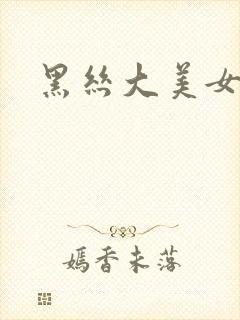 黑丝大美女
嫣香未落